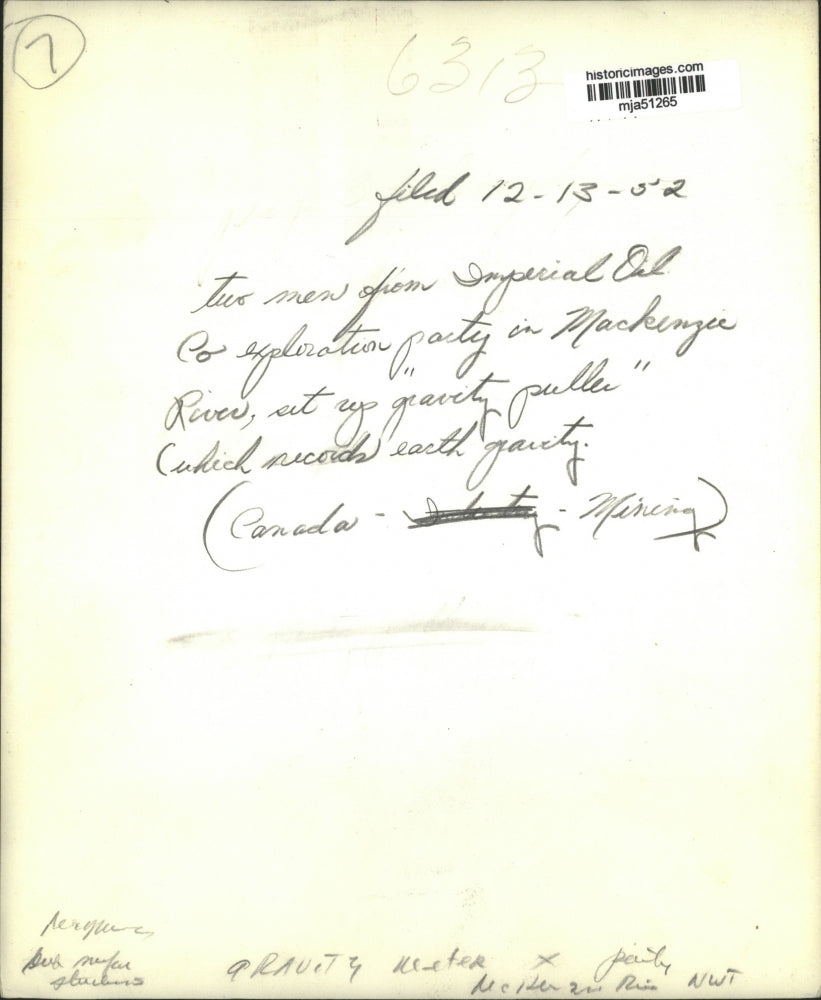 7
6313
historicimages.com
mja51265
filed 12-13-52
two men from Imperial Oil
Co exploration party in Mackenzie
River, set up "gravity puller"
(which records earth gravity.
(Canada - - Mining)
GRAVITY meter x party
McKenzie Riv NWT